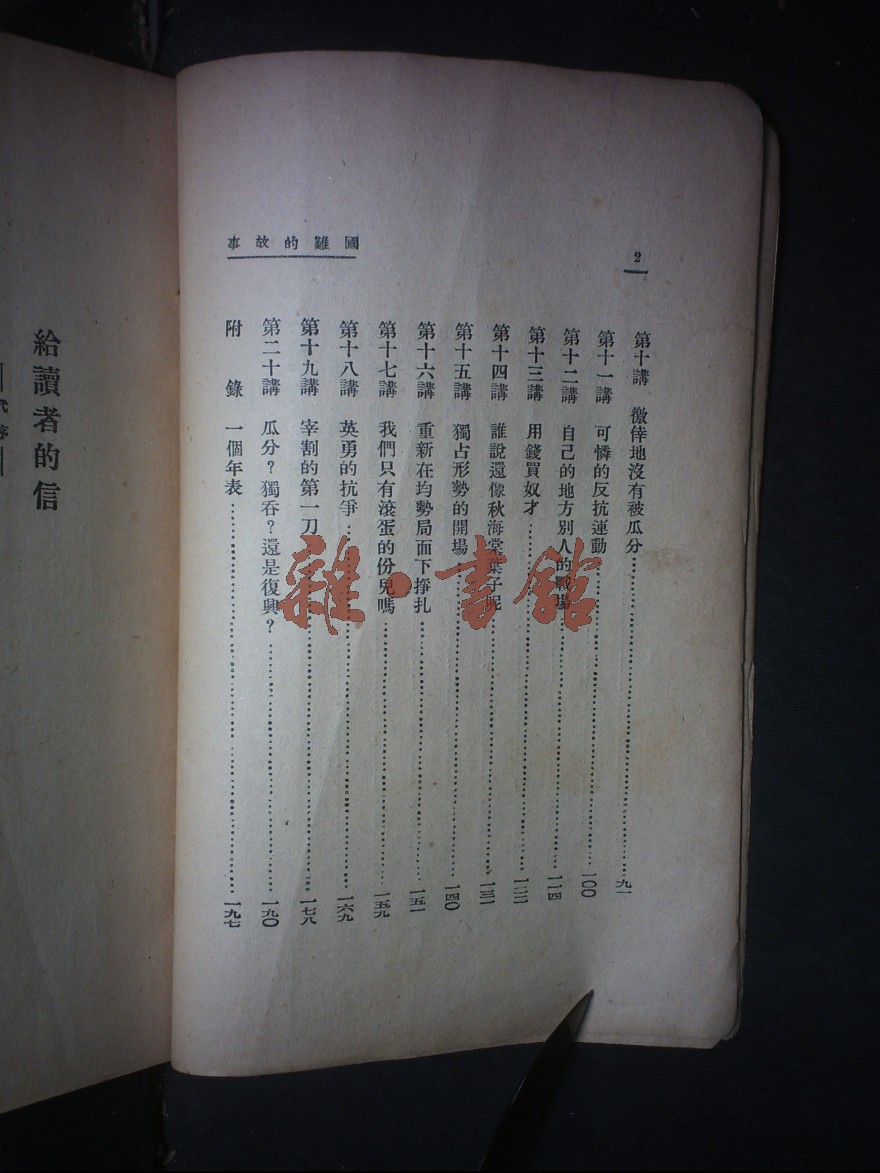 2
國難的故事
第十講 徼倖地沒有被瓜分……九一
第十一講 可憐的反抗運動……一〇〇
第十二講 自己的地方別人的戰場……一一四
第十三講 用錢買奴才……一二二
第十四講 誰說還像秋海棠葉子呢……一三一
第十五講 獨占形勢的開場……一四〇
第十六講 重新在均勢局面下掙扎……一五一
第十七講 我們只有滾蛋的份兒嗎……一五九
第十八講 英勇的抗爭……一六九
第十九講 宰割的第一刀……一七八
第二十講 瓜分?獨吞?還是復興?……一九〇
附錄 一個年表……一九七
給讀者的信
雜·書館